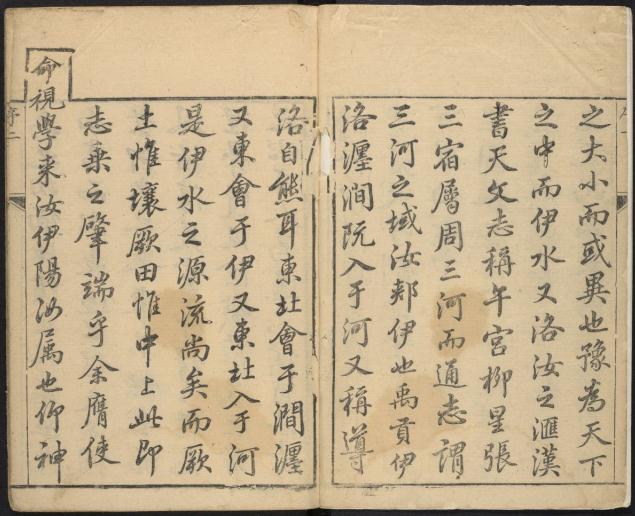 之大小而或異也豫為天下
之中而伊水又洛汝之滙漢
書天文志稱午宮柳星張
三宿屬周三河而通志謂
三河之域汝郟伊也禹貢伊
洛瀍澗既入于河又稱導
洛自熊耳東北會于澗瀍
又東會于伊又東北入于河
是伊水之源流尚矣而厥
土惟壤厥田惟中上此即
志乗之肇端乎余膺使
命視學来汝伊陽汝属也仰神
序二